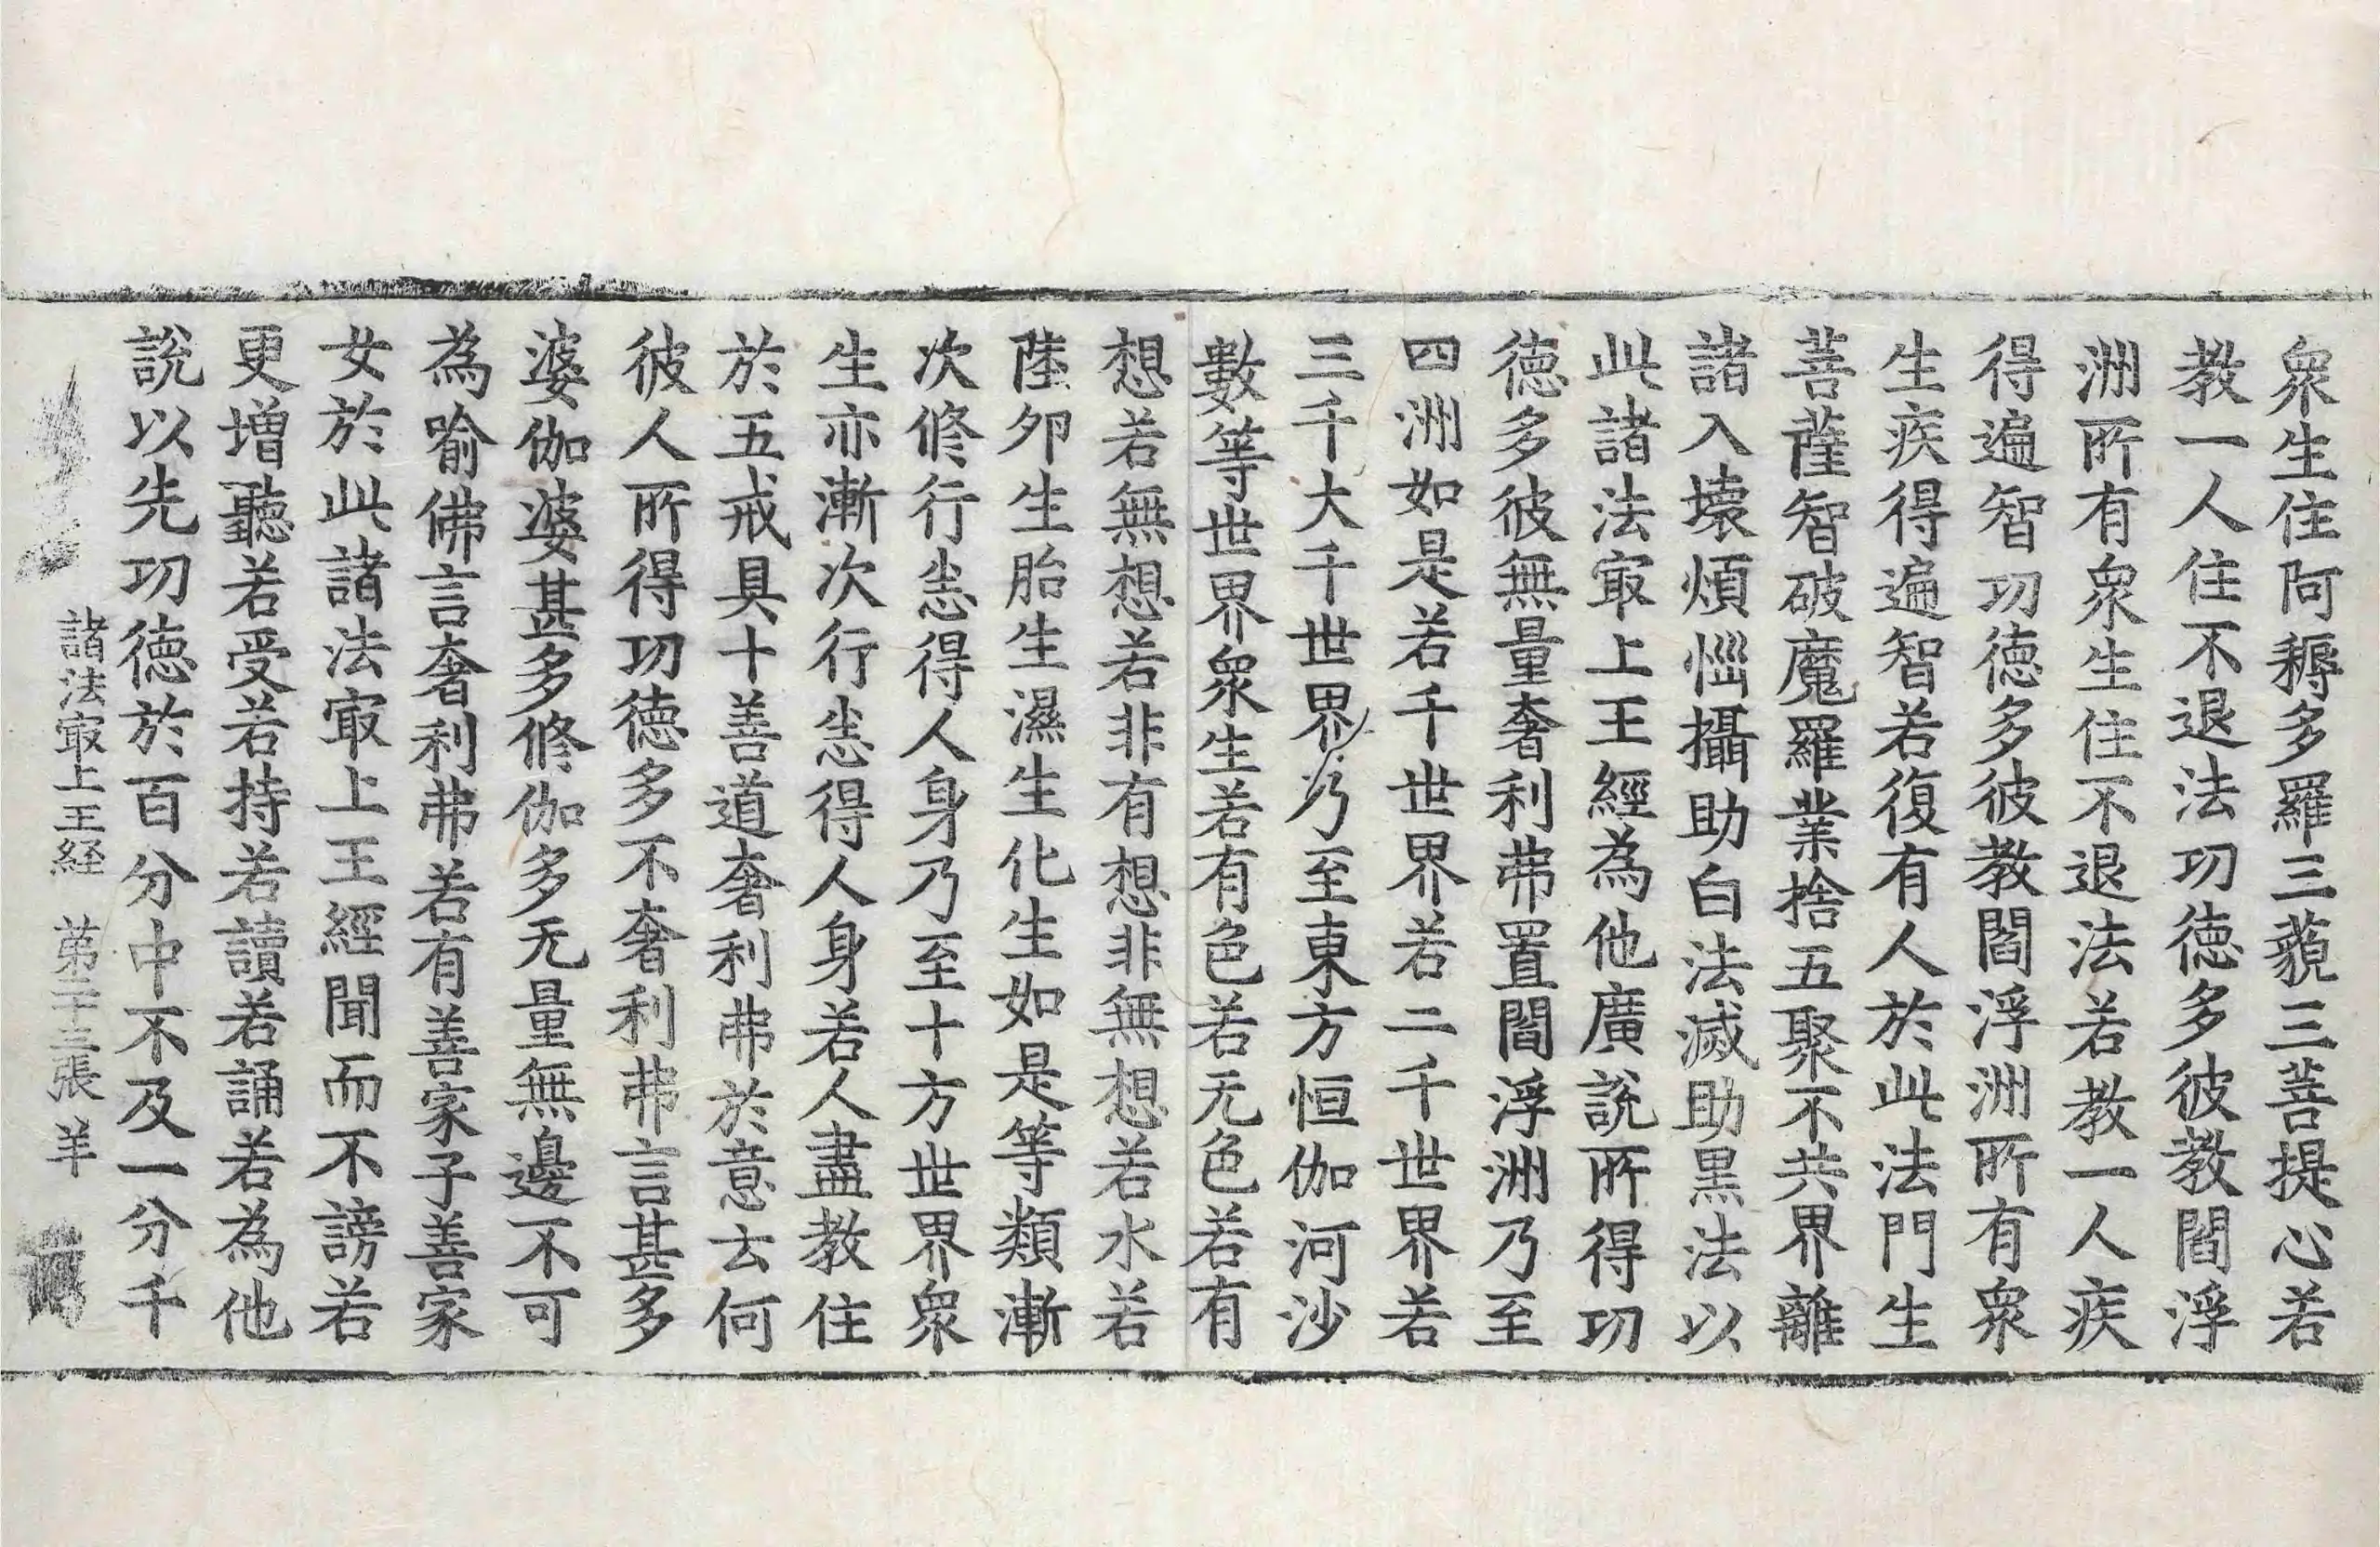 衆生住阿耨多羅三藐三菩提心若
教一人住不退法功徳多彼教閻浮
洲所有衆生住不退法若教一人疾
得遍智功徳多彼教閻浮洲所有衆
生疾得遍智若復有人於此法門生
菩薩智破魔羅業捨五聚不共界離
諸入壞煩惱攝助白法滅助黒法以
此諸法㝡上王經為他廣說所得功
徳多彼無量奢利弗置閻浮洲乃至
四洲如是若千世界若二千世界若
三千大千世界乃至東方恒伽河沙
數等世界衆生若有色若无色若有
想若無想若非有想非無想若水若
陸夘生胎生濕生化生如是等類漸
次修行恙得人身乃至十方世界衆
生亦漸次行恙得人身若人盡教住
於五戒具十善道奢利弗於意云何
彼人所得功徳多不奢利弗言甚多
婆伽婆甚多修伽多无量無邊不可
為喻佛言奢利弗若有善家子善家
女於此諸法㝡上王經聞而不謗若
更增聽若受若持若讀若誦若為他
說以先功徳於百分中不及一分千
諸法㝡上王経 第二十三張 羊